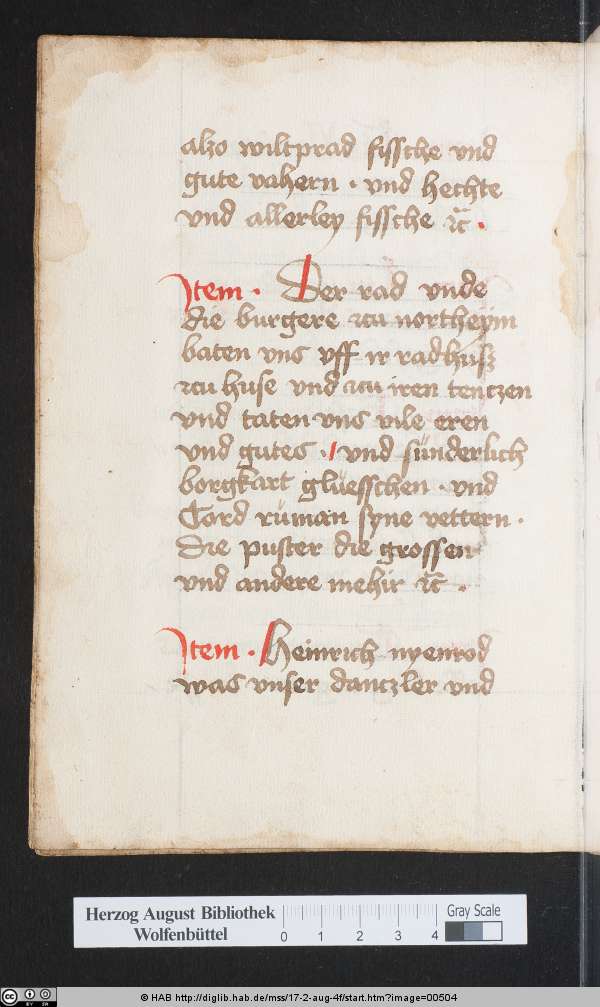 also wiltprad fissche vnd
gute vahern · vnd hechte
vnd allerley fissche ⁊c̄ ·
Item · Der rad vnde
die burgere zcu northeym
baten vns vff ir radhusz
zcu huse vnd zcu iren tentzen
vnd taten vns vile eren
vnd gutes · / vnd sünderlich
borgkart glüesschen · vnd
Cord rüman syne vettern ·
Die puster die grossen
vnd andere mehir ⁊c̄ ·
Item · Heinrich nyenrod
was vnser dantzler vnd
Herzog August Bibliothek
Wolfenbüttel
0 1 2 3 4
Gray Scale
© HAB http://diglib.hab.de/mss/17-2-aug-4f/start.htm?image=00504